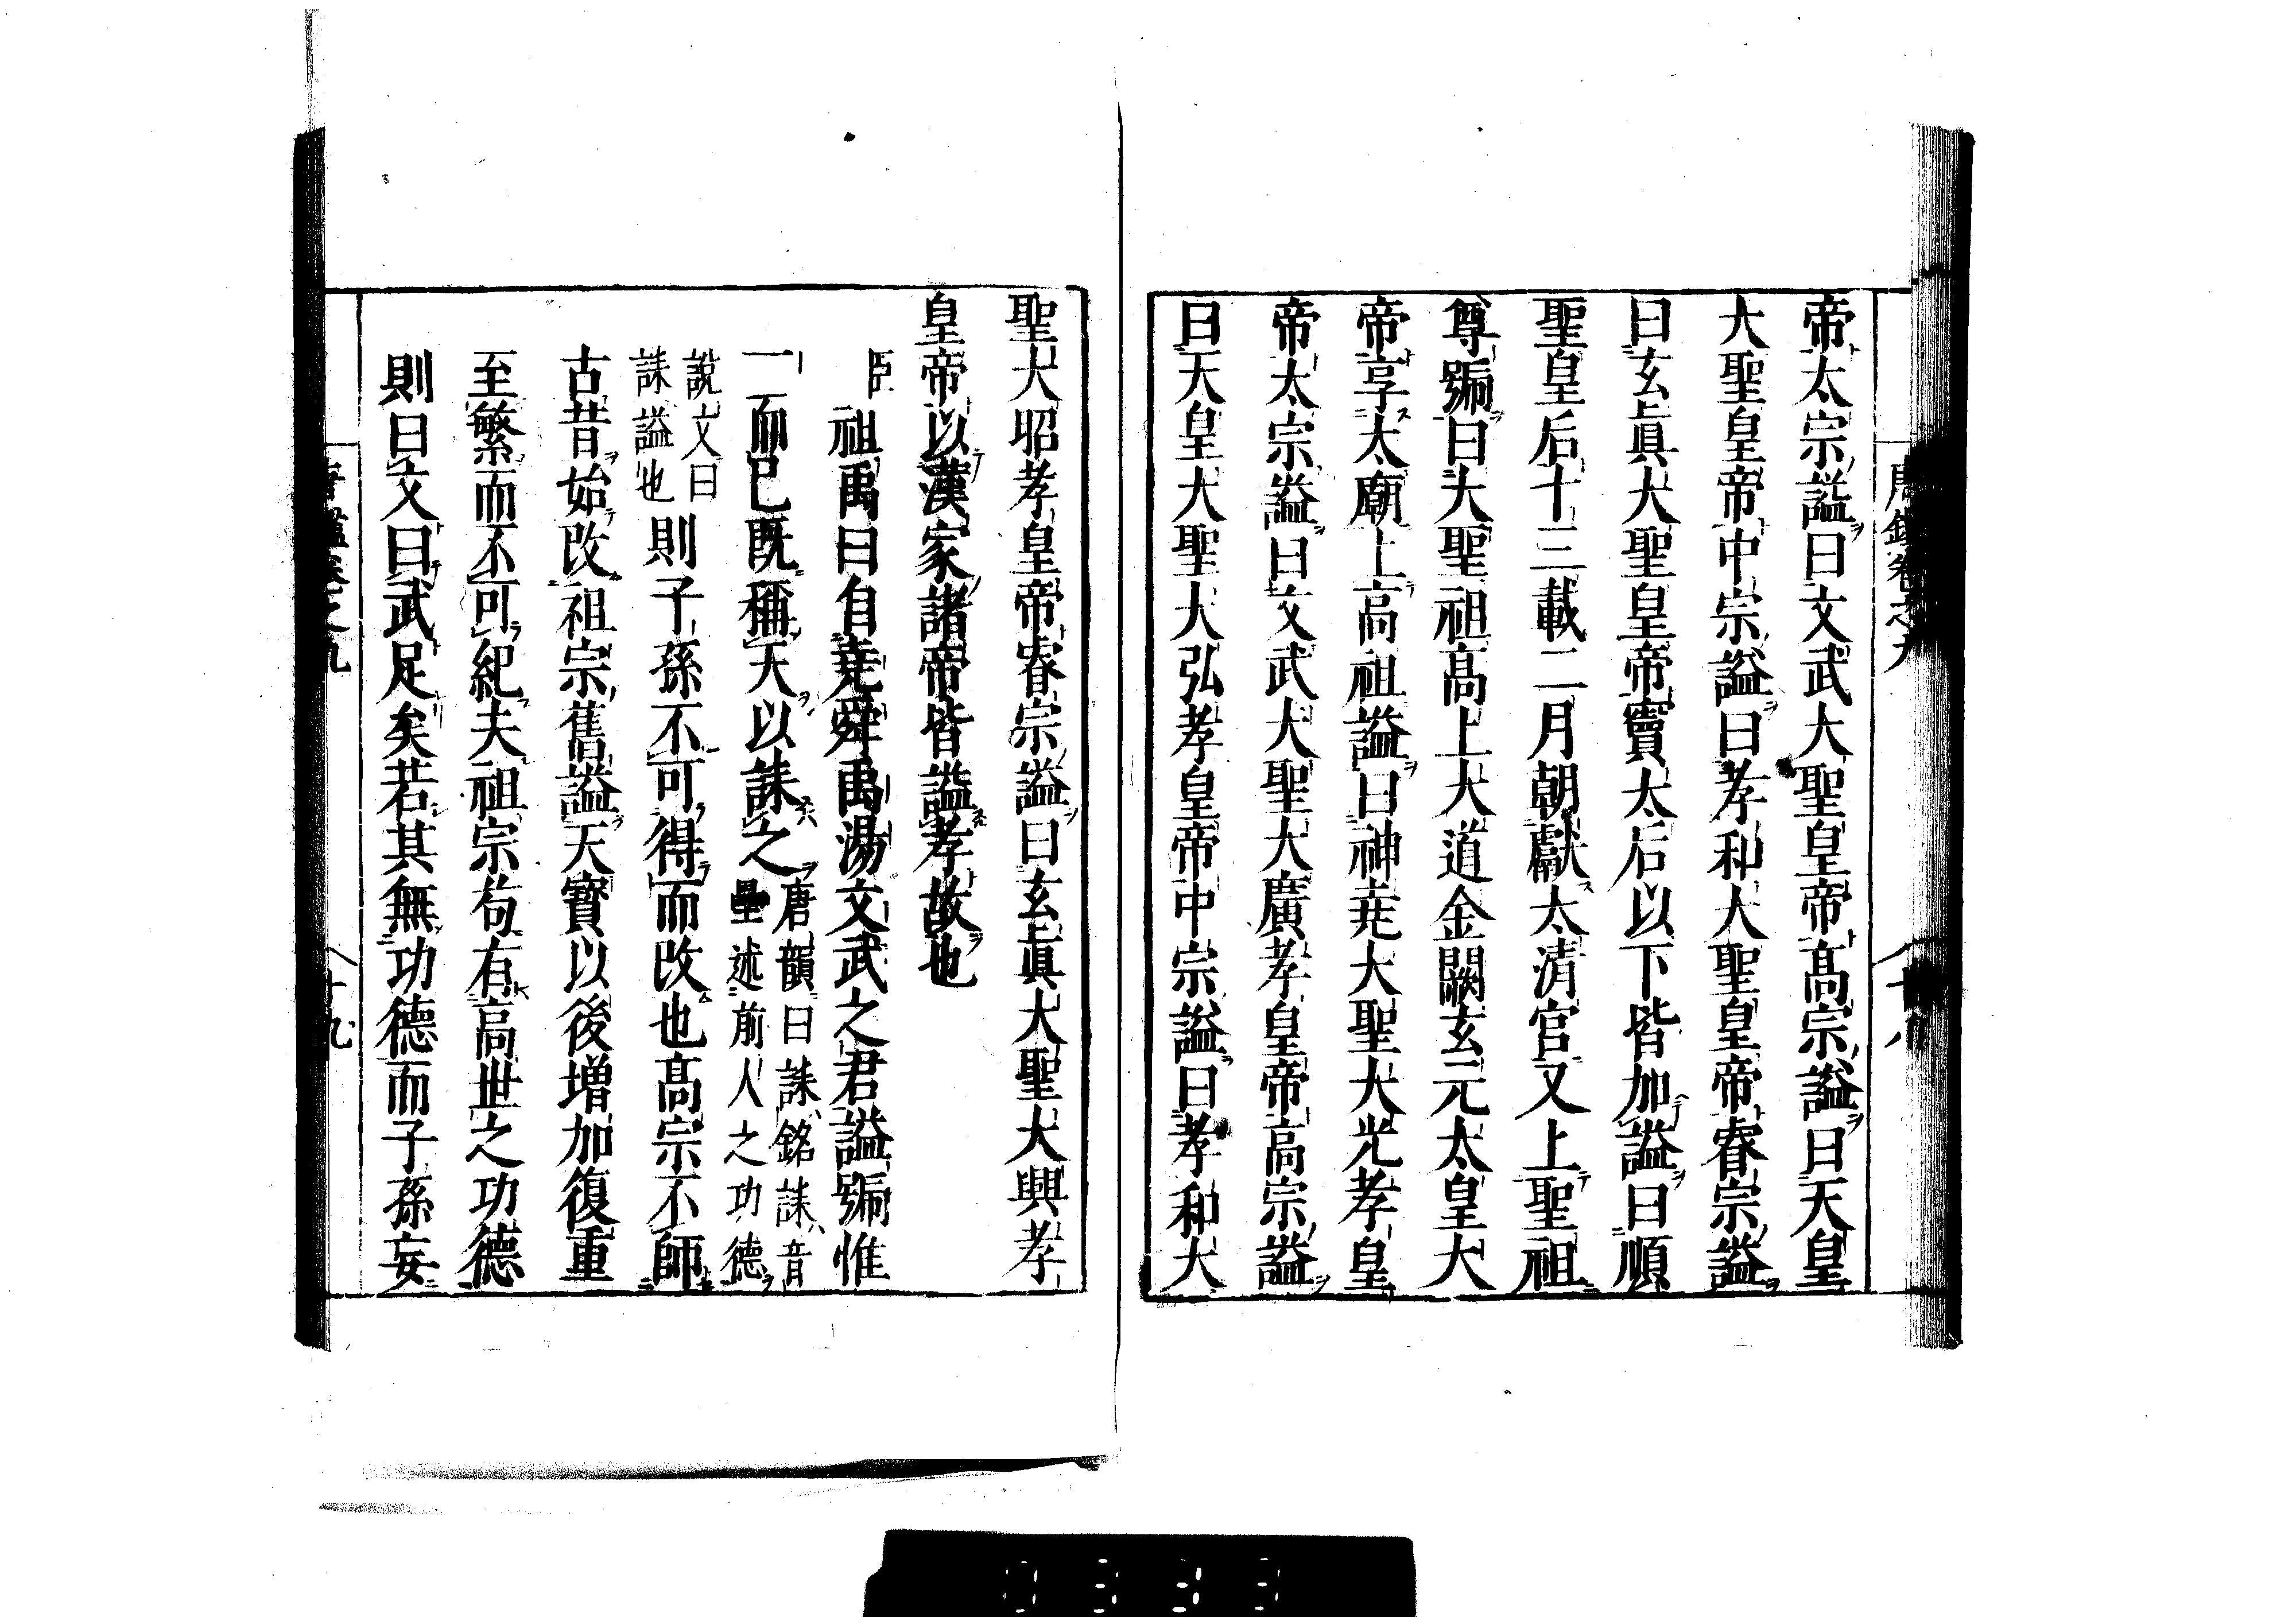 帝太宗謚曰文武大聖皇帝高宗謚曰天皇
大聖皇帝中宗謚曰孝和大聖皇帝睿宗謚
曰玄眞大聖皇帝竇太后以下皆加謚曰順
聖皇后十三載二月朝獻太清宮又上聖祖
尊號曰大聖祖高上大道金闕玄元太皇大
帝享太廟上高祖謚曰神堯大聖大光孝皇
帝太宗謚曰文武大聖大廣孝皇帝高宗謚
曰天皇大聖大弘孝皇帝中宗謚曰孝和大
聖大昭孝皇帝睿宗謚曰玄眞大聖大興孝
皇帝以漢家諸帝皆謚孝故也
臣祖禹曰自堯舜禹湯文武之君謚號惟
一而已既稱天以誄之唐韻曰誄銘誄音
壘述前人之功德
說文曰
誄謚也則子孫不可得而改也高宗不師
古昔始改祖宗舊謚天寶以後增加復重
至繁而不可紀夫祖宗苟有高世之功德
則曰文曰武足矣若其無功德而子孫妄
唐鑑卷之九
十九